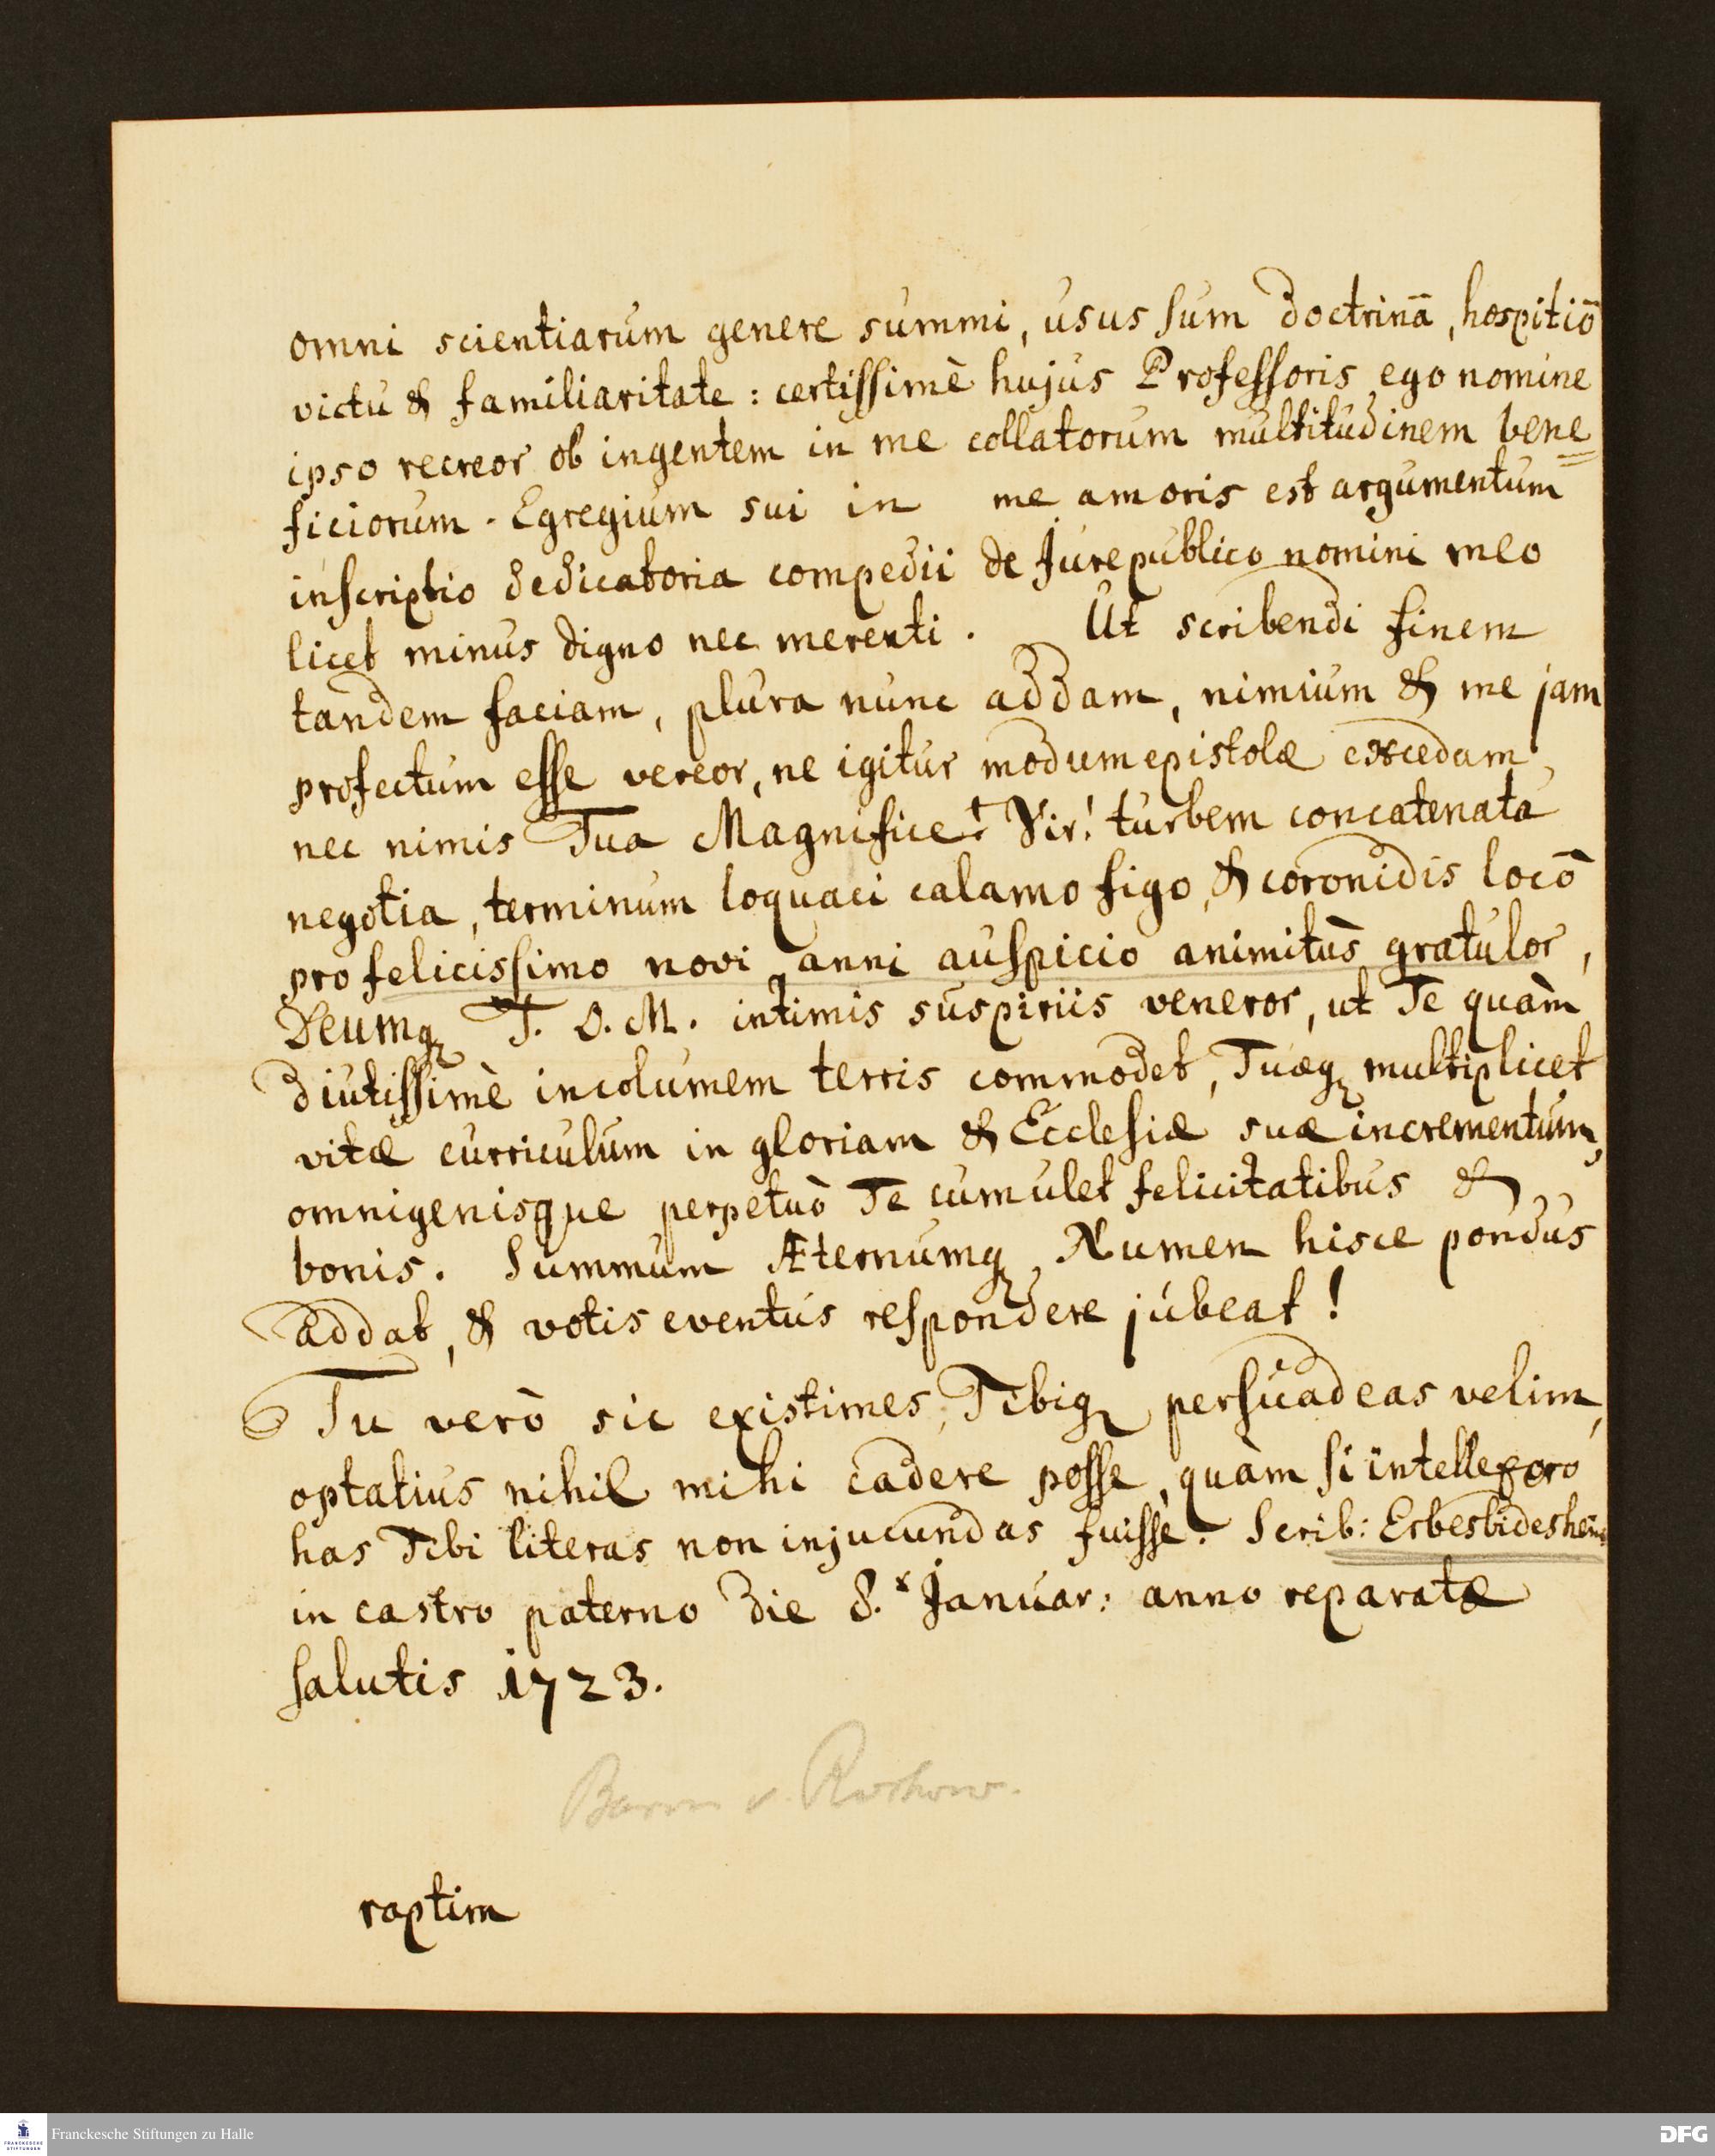 omni scientiarum genere summi, usus sum doctrinâ, hospitiô
victu & familiaritate : certissimè hujus Professoris ego nomine
ipso recreor ob ingentem in me collatorum multitudinem bene=
ficiorum. Egregium sui in me amoris est argumentum
inscriptio dedicatoria compedii de Jure publico nomini meo
licet minus digno nec merenti. Ut scribendi finem
tandem faciam, plura nunc addam, nimium & me jam
profectum esse vereor, ne igitur modum epistolæ excedam,
nec nimis Tua Magnifice Vir! turbem concatenata
negotia, terminum loquaci calamo figo, & coronidis locô
pro felicissimo novi anni auspicio animitùs gratulor,
Deumq T. O. M. intimis suspiriis veneror, ut Te quàm
diutissimè incolumem terris commodet, Tuæq multiplicet
vitæ curriculum in gloriam & Ecclesiæ suæ incrementum,
omnigenisque perpetuò Te cumulet felicitatibus &
bonis. Summum Æternumq Numen hisce pondus
addat, & votis eventus respondere jubeat!
Tu verò sic existimes, Tibiq persuadeas velim,
optatius nihil mihi cadere posse, quàm si intellexero
has Tibi literas non injucundas fuisse. Scrib:
in castro paterno die 8. Januar: anno reparatæ
salutis 1723.
Baron v. Rochow.
raptim
Franckesche Stiftungen zu Halle
DFG